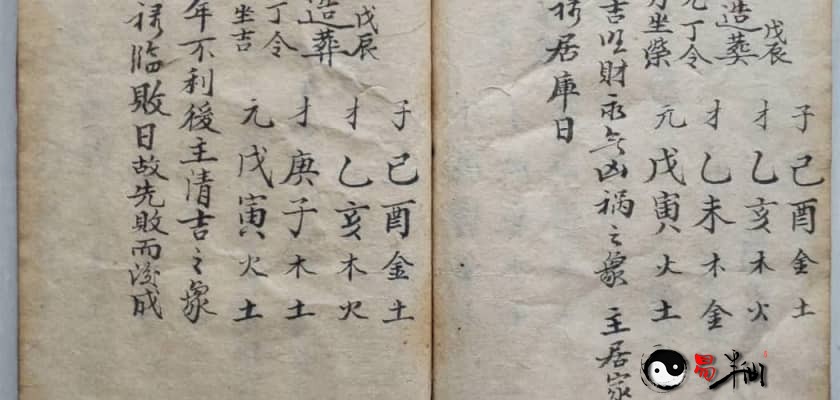 子己酉金土
戊辰
才乙亥木火
造葬
才乙未木金
丁令
元戊寅火土
坐榮
吉旺財永无凶禍之象 主居家
祿居庫日
子己酉金土
戊辰
才乙亥木火
造葬
才庚子木土
丁令
元戊寅火土
坐吉
年不利後主清吉之象
祿臨敗日故先敗而後成
易半仙